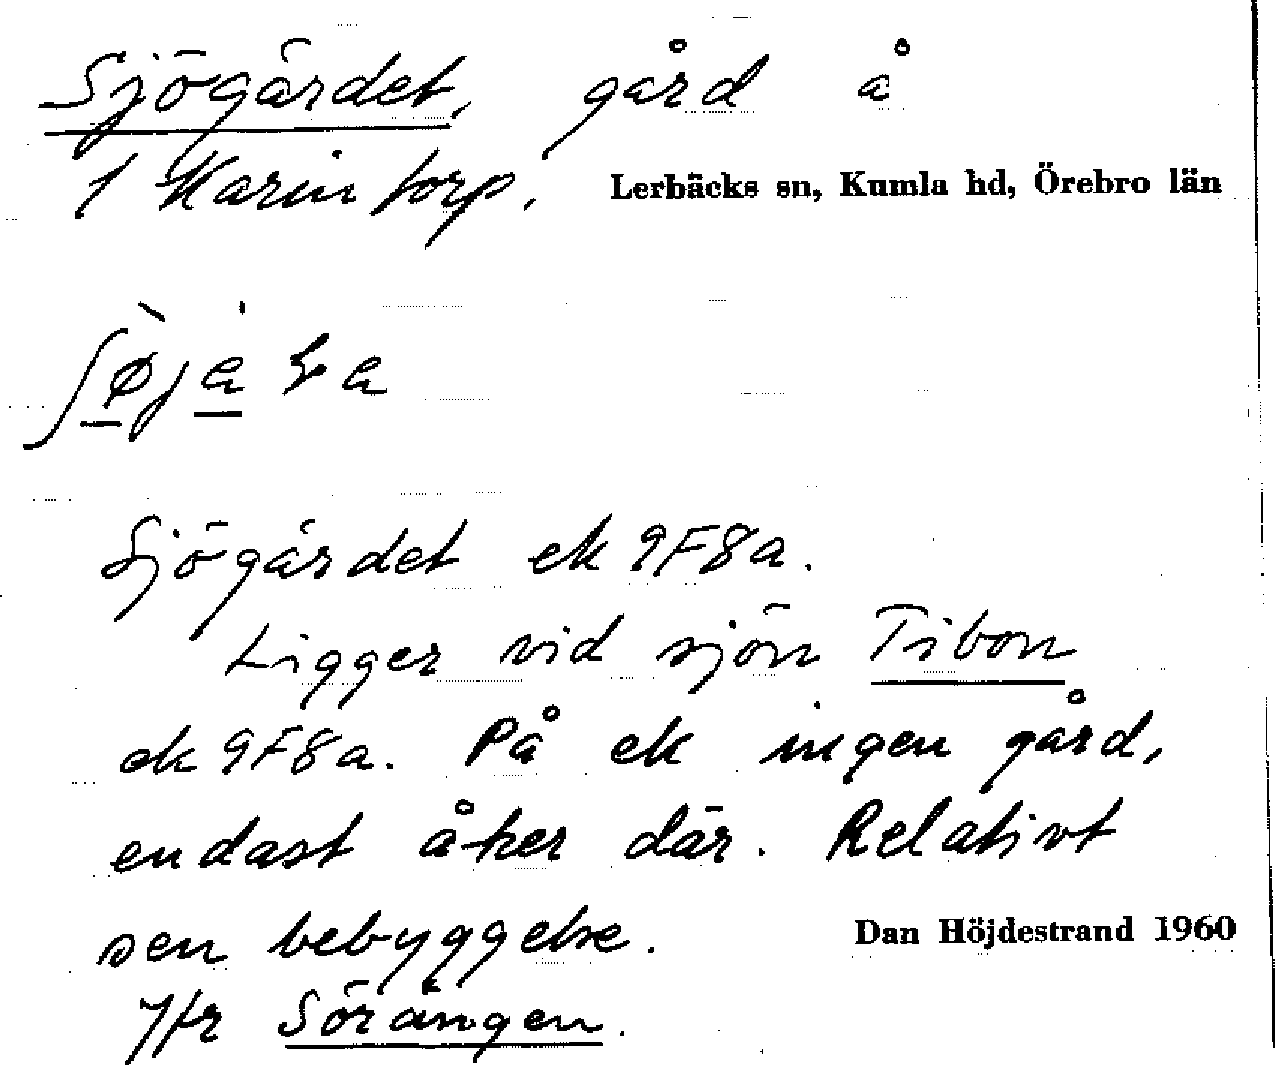 Sjögärdet, gård å
1 Karintorp. Lerbäcks sn, Kumla hd, Örebro län
Sjögärdet ek 9F8a.
Ligger vid sjön Tibon
ek 9F8a. På ek ingen gård,
endast åker där. Relativt
sen bebyggelse. Dan Höjdestrand 1960
Jfr Sörängen.